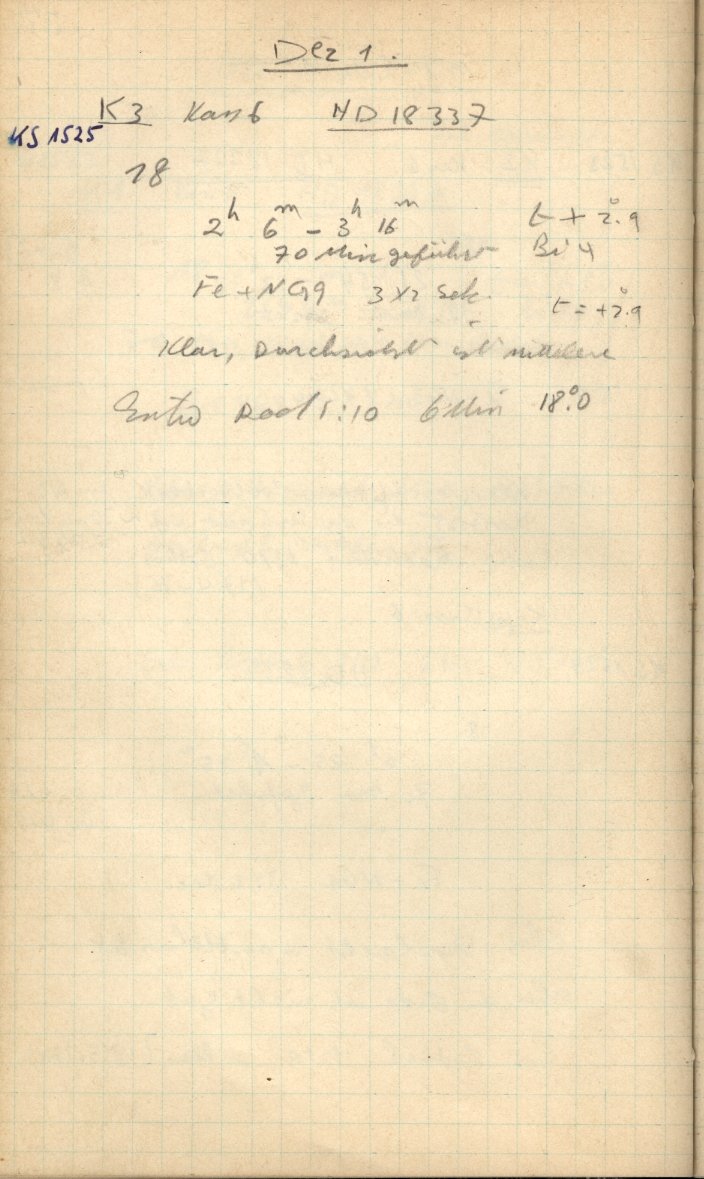 Dez 1.
K3 Kass 6 HD 18337
KS 1525
18
2h 6m - 3h 16m t + 2°.9
70 Min geführt Bi 4
Fe + NG9 3x2 Sek. t = +2°.9
Klar, Durchsicht ist mittlere
Entw Rod 1:10 6 Min 18°.0